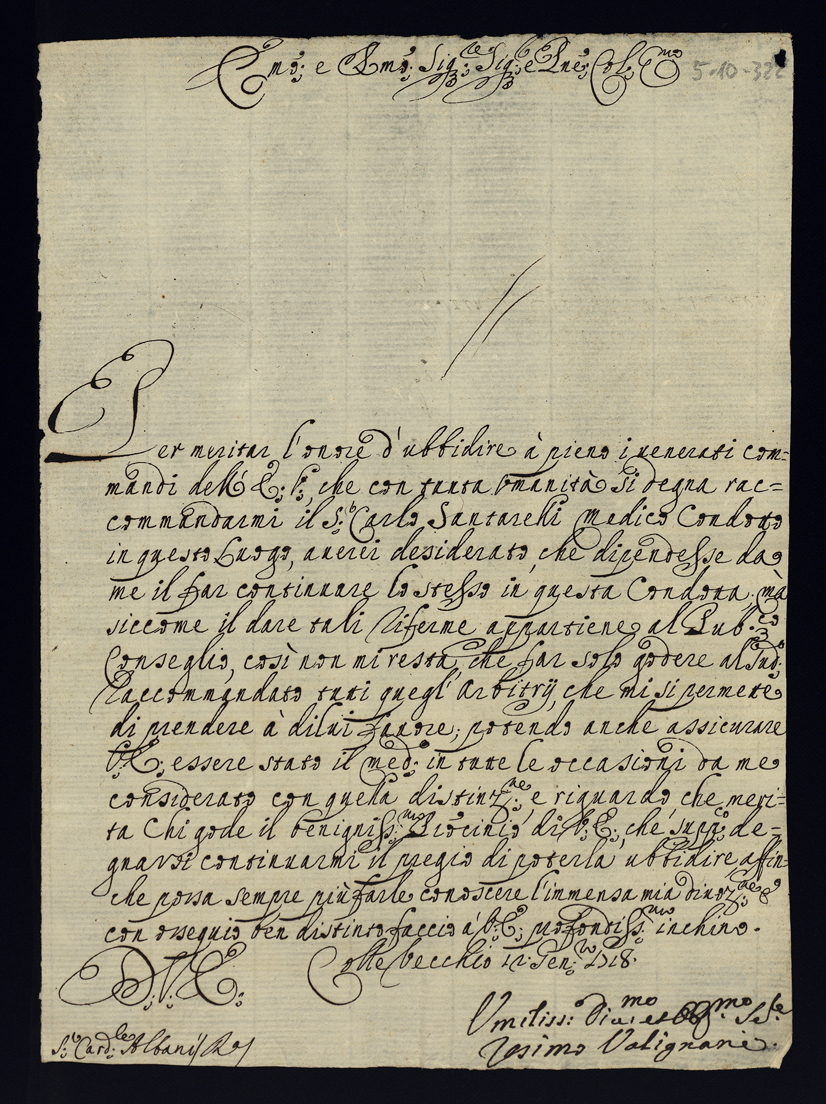 Emo: e Rmo: Sig:re Sig:re e Pne: Col: Emo
5-10-322
Per meritar l'onore d'ubbidire à pieno i venerati com=
mandi dell'E: V:, che con tanta Vmanità si degna rac=
commandarmi il S:r Carlo Santarelli Medico Condotto
in questo Luogo, averei desiderato, che dipendesse da
me il far continuare lo stesso in questa Condotta. mà
siccome il dare tali Riferme appartiene al Pub:co
Conseglio, così non mi resta, che far solo godere al sud:o
Raccommandato tutti quegl'Arbitrij, che mi si permette
di prendere à di lui favore; potendo anche assicurare
V:E: essere stato il med:o in tutte le occasioni da me
considerato con quella distintz:ne, e riguardo, che meri=
ta Chi gode il benigniss:mo P̅rocinio di V:E:, che supp:co de=
gnarsi continuarmi il pregio di poterla ubbidire, affin=
che possa sempre più farle conoscere l'immensa mia divoz:ne, e
con ossequio ben distinto faccio à V:E: profondiss:mo inchino.
D:V:E: Collevecchio 12: Gen:ro 1718.
Vmiliss: Diu: et Obb:mo Se:re
Zosimo Valignani.
S:r Card:le Albani